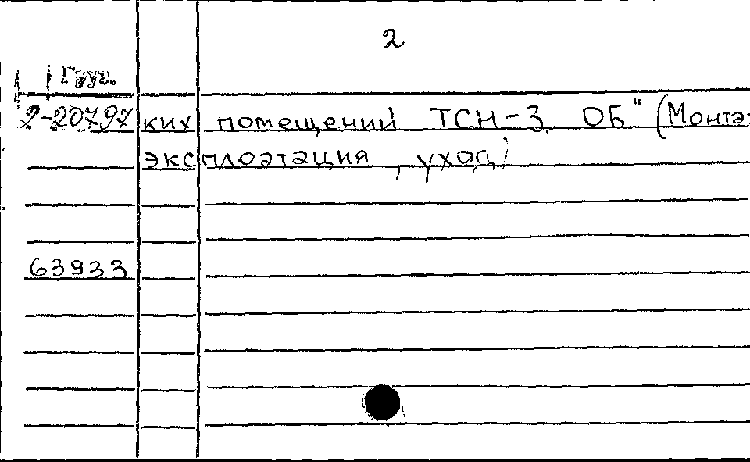 2
2-20797 ких помещений ТСН-3 ОБ" (Монта
эксплоатация, уход)
63933